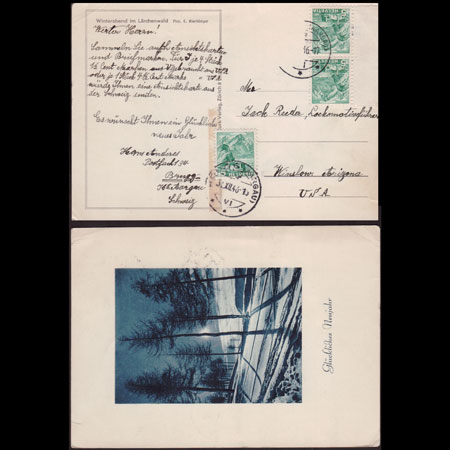 Winterabend im Lärchenwald Phot. E. Brechbühl
Werter Herrn!
Sammeln Sie auch Ansichtskarten
und Briefmarken. Für 3 je 9 Stück
½ Cent-Marken
oder je 1 Stück 4½ Cent-Marke USA
würde Ihnen eine Ansichtskarte aus
der Schweiz senden.
Es wünscht Ihnen ein Glückliches
neues Jahr
Hans Anderes
Postfach
Brugg
Aargau
Schweiz
HELVETIA
Mr.
Jack Reeder, Lockomotivführer
Winslow Arizona
USA
Glückliches Neujahr